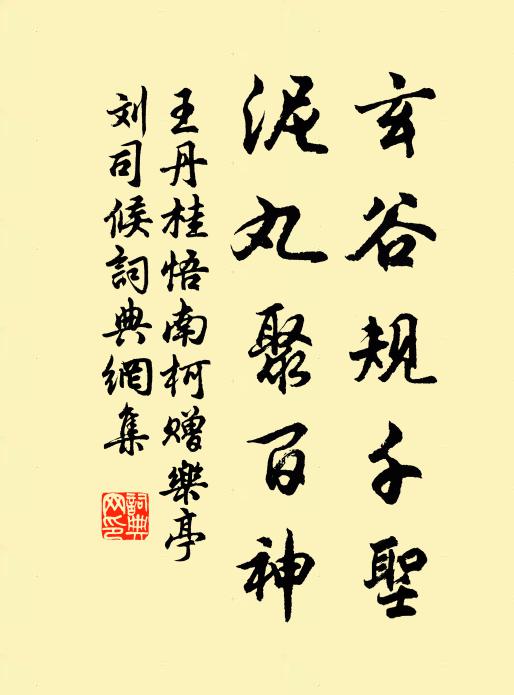 玄谷规千聖
泥丸聚百神
王丹桂悟南柯赠樂亭
刘司候詞典網集
詞典網印